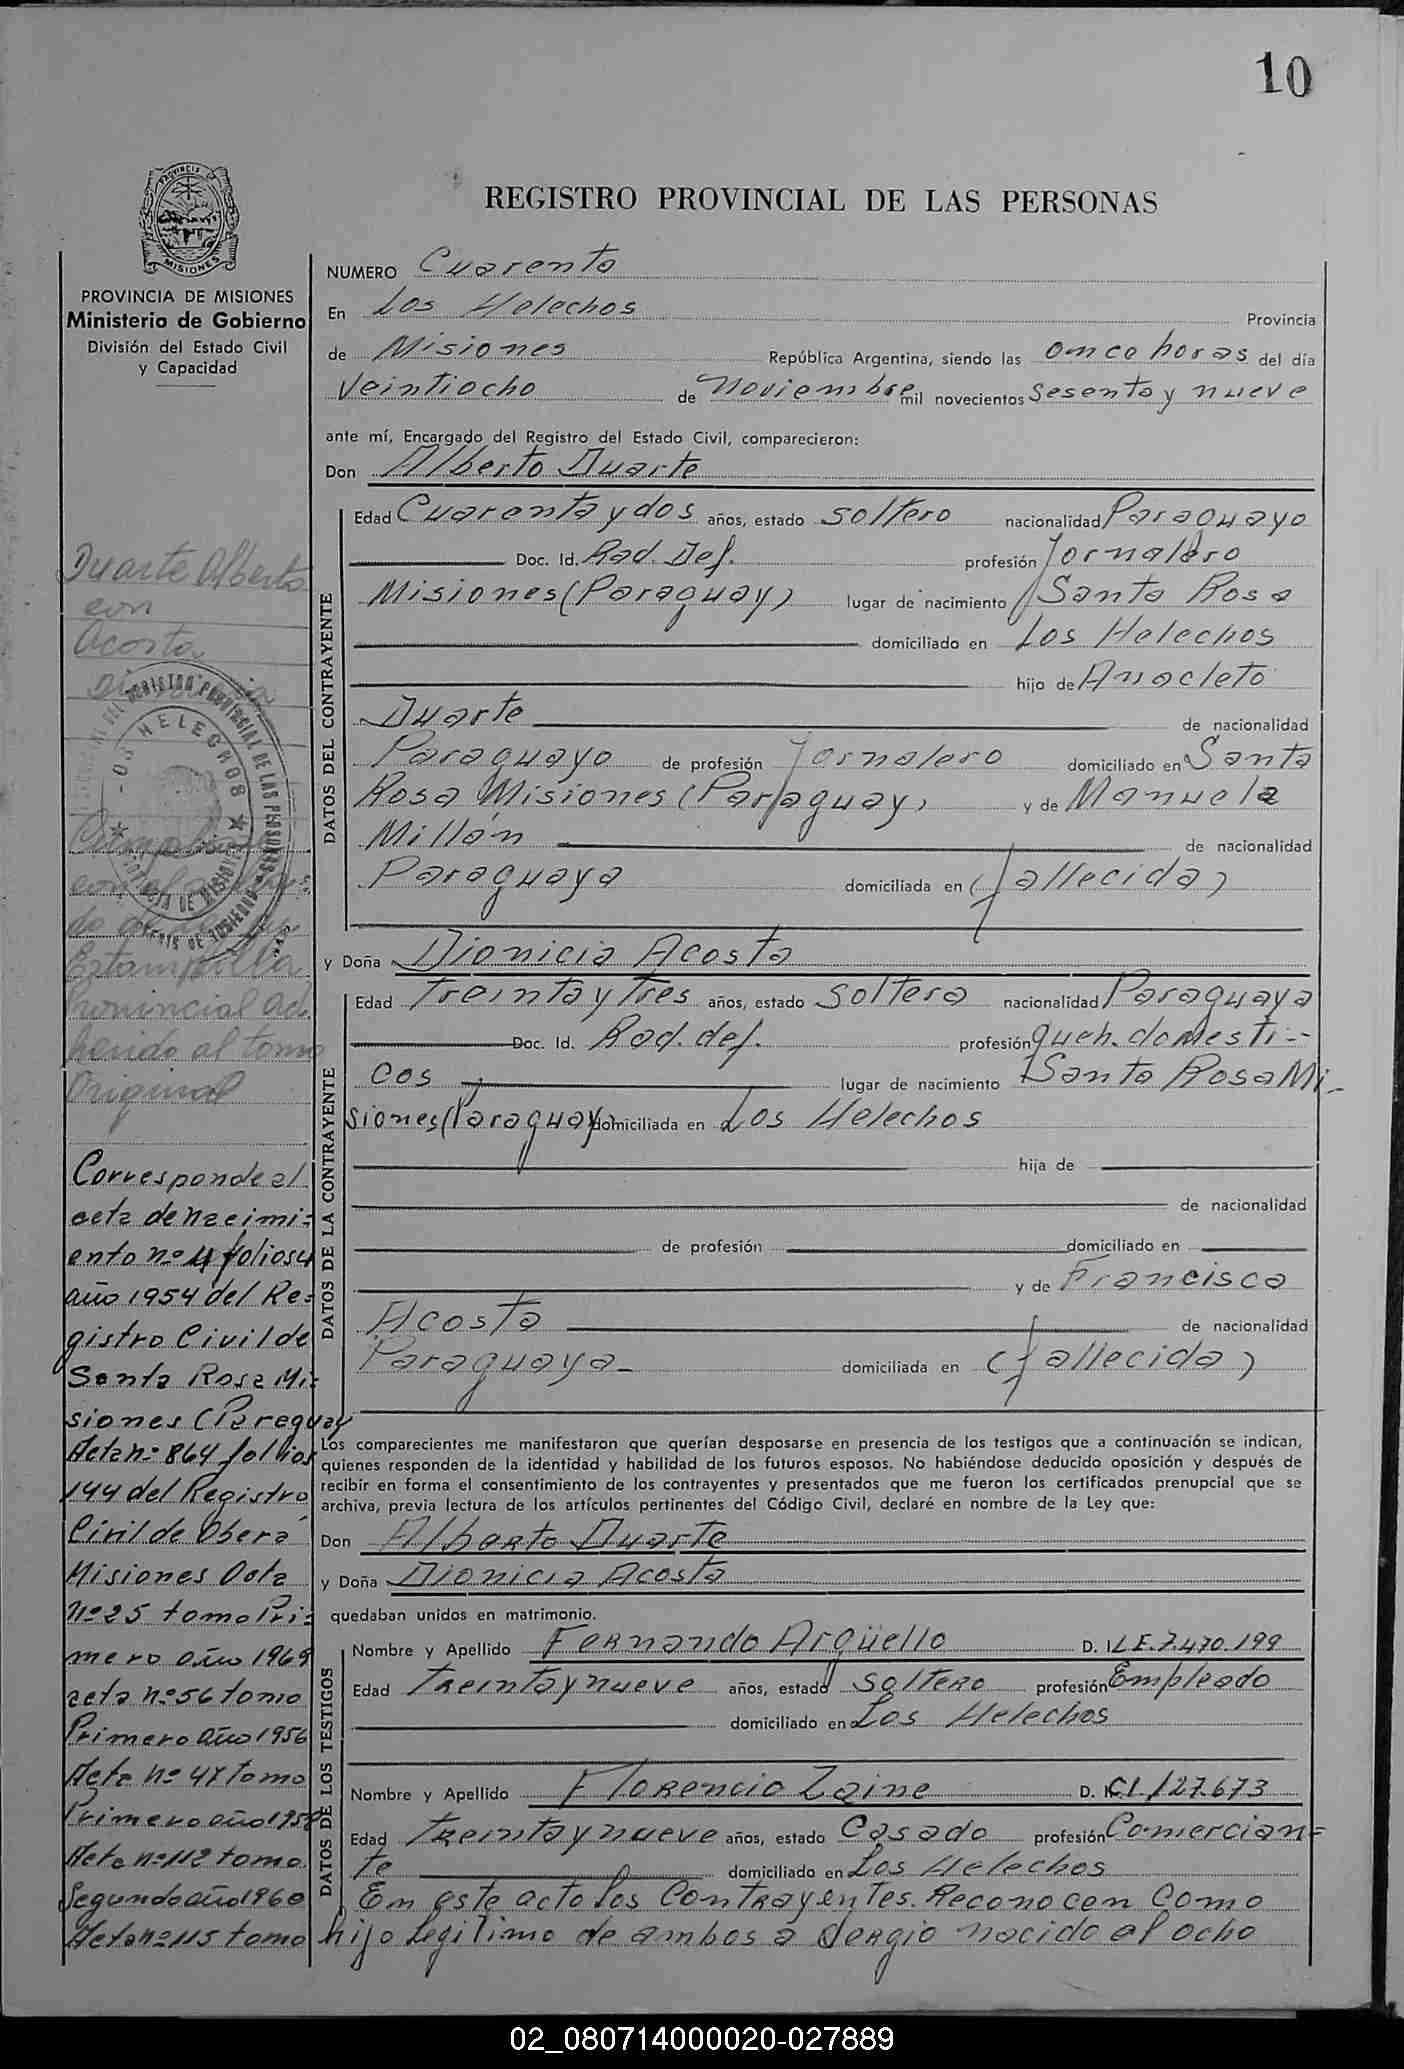 10
REGISTRO PROVINCIAL DE LAS PERSONAS
PROVINCIA
MISIONES
PROVINCIA DE MISIONES
Ministerio de Gobierno
División del Estado Civil
y Capacidad
NUMERO Cuarenta
En Los Helechos Provincia
de Misiones República Argentina, siendo las once horas del día
veintiocho de Noviembre mil novecientos sesenta y nueve
ante mí, Encargado del Registro del Estado Civil, comparecieron:
Don Alberto Duarte
DATOS DEL CONTRAYENTE
Edad Cuarenta y dos años, estado soltero nacionalidad Paraguayo
Doc. Id. Rad. Def. profesión Jornalero
Misiones (Paraguay) lugar de nacimiento Santa Rosa
domiciliado en Los Helechos
hijo de Anacleto
Duarte de nacionalidad
Paraguayo de profesión Jornalero domiciliado en Santa
Rosa Misiones (Paraguay) y de Manuela
Millán de nacionalidad
Paraguaya domiciliada en (fallecida)
y Doña Dionicia Acosta
DATOS DE LA CONTRAYENTE
Edad treinta y tres años, estado soltera nacionalidad Paraguaya
Doc. Id. Rad. def. profesión queh. domesti-
cos lugar de nacimiento Santa Rosa Mi-
siones (Paraguay) domiciliada en Los Helechos
hija de
de nacionalidad
de profesión domiciliado en
y de Francisca
Acosta de nacionalidad
Paraguaya domiciliada en (fallecida)
Los comparecientes me manifestaron que querían desposarse en presencia de los testigos que a continuación se indican,
quienes responden de la identidad y habilidad de los futuros esposos. No habiéndose deducido oposición y después de
recibir en forma el consentimiento de los contrayentes y presentados que me fueron los certificados prenupcial que se
archiva, previa lectura de los artículos pertinentes del Código Civil, declaré en nombre de la Ley que:
Don Alberto Duarte
y Doña Dionicia Acosta
quedaban unidos en matrimonio.
DATOS DE LOS TESTIGOS
Nombre y Apellido Fernando Argüello D. I. L.E. 7.470.199
Edad treinta y nueve años, estado soltero profesión Empleado
domiciliado en Los Helechos
Nombre y Apellido Florencio Zaine D. I. C.I. 127.673
Edad treinta y nueve años, estado Casado profesión Comercian=
te domiciliado en Los Helechos
En este acto los Contrayentes. Reconocen como
hijo legitimo de ambos a Sergio nacido el ocho
Duarte Alberto
con
Acosta
HELECHOS
Estampilla
Provincial ad
herido al tomo
Original
Corresponde al
acta de nacimi=
ento nº 4 folios 4
año 1954 del Re=
gistro Civil de
Santa Rosa Mi=
siones (Paraguay
Acta nº 864 folios
144 del Registro
Civil de Oberá
Misiones Acta
Nº 25 tomo Pri=
mero año 1969
acta nº 56 tomo
Primero año 1956
Acta Nº 47 tomo
Primero año 1958
Acta nº 112 tomo
Segundo año 1960
Acta nº 115 tomo
02_080714000020-027889